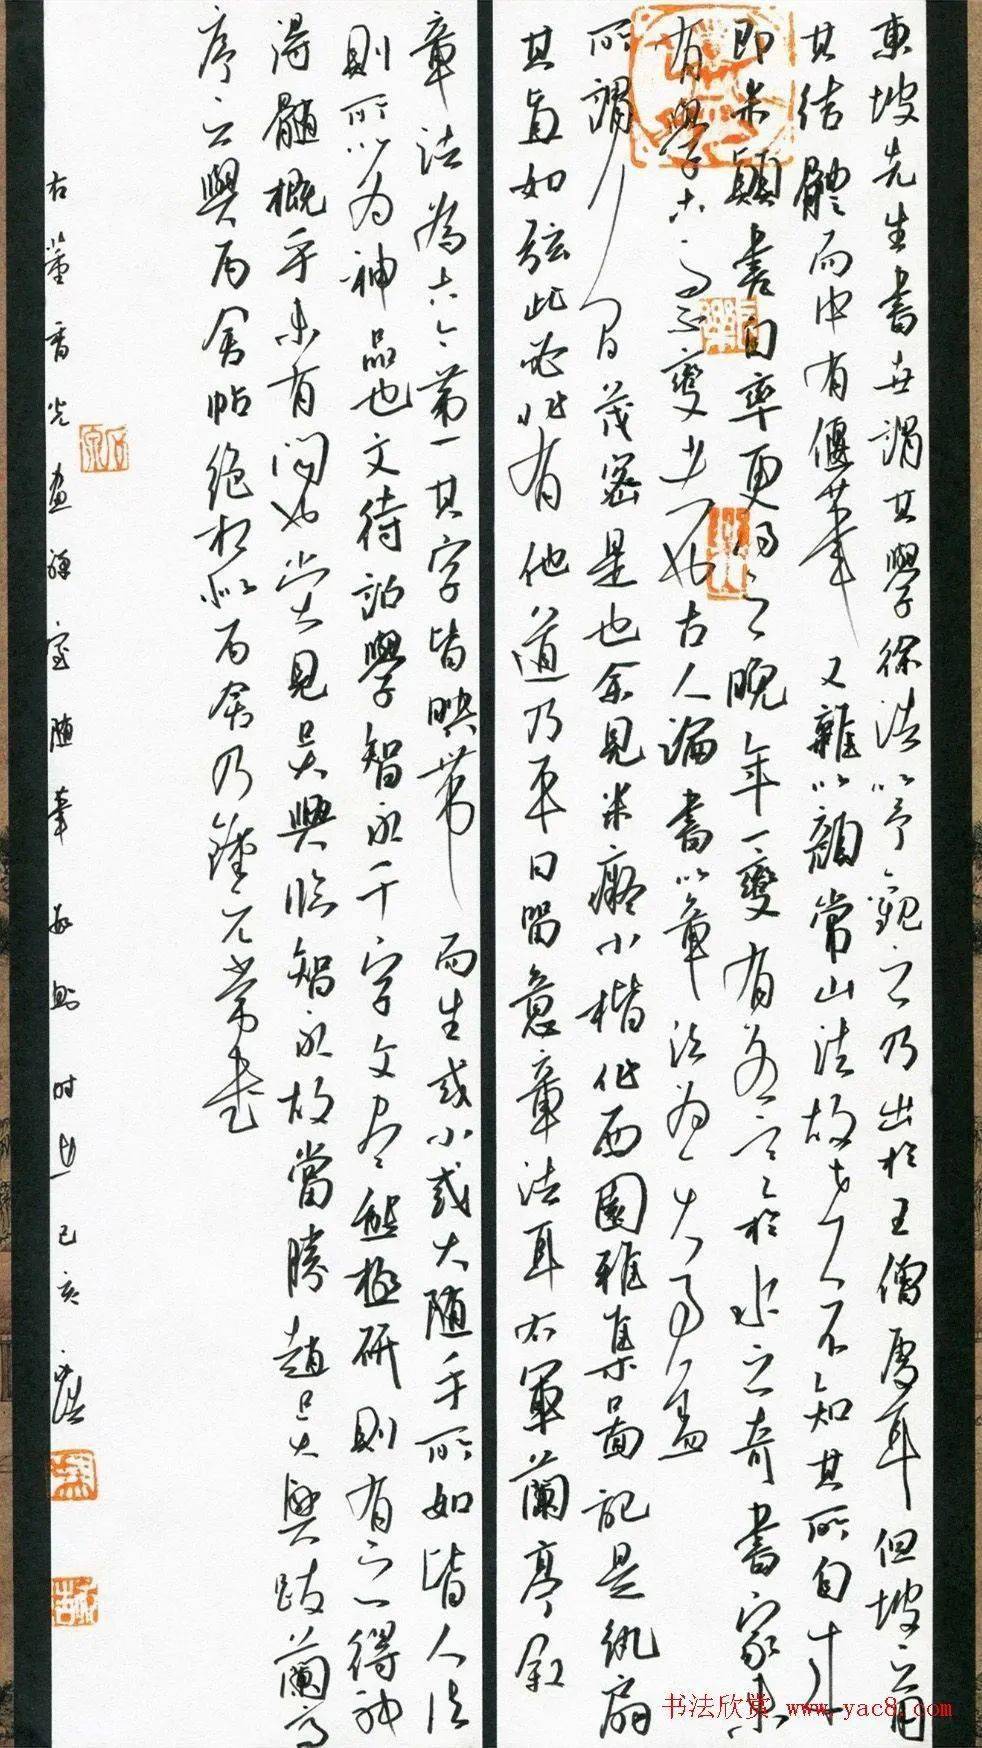 東坡先生書世謂其學徐浩以予觀之乃出於王僧虔耳但坡公用
其結體而中有偃筆又雜以顏常山法故世人不知其所自来
即米顛書自率更得之晚年一變有冰寒於水之奇書家未
有學古而不變者也古人論書以章法為一大事盖
所謂行間茂密是也余見米癡小楷作西園雅集圖記是紈扇
其直如弦此必非有他道乃平日留意章法耳右軍蘭亭叙
章法為古今第一其字皆映帶而生或小或大隨手所如皆入法
則所以為神品也文待詔學智永千字文尽態極研則有之得神
得髓概乎未有聞也嘗見吳興臨智永故當勝趙吳興跋蘭亭
序云與丙舍帖絶相似丙舍乃鍾元常書
右董香光畫禪室随筆数則时在己亥
书法欣赏 www.yac8.com